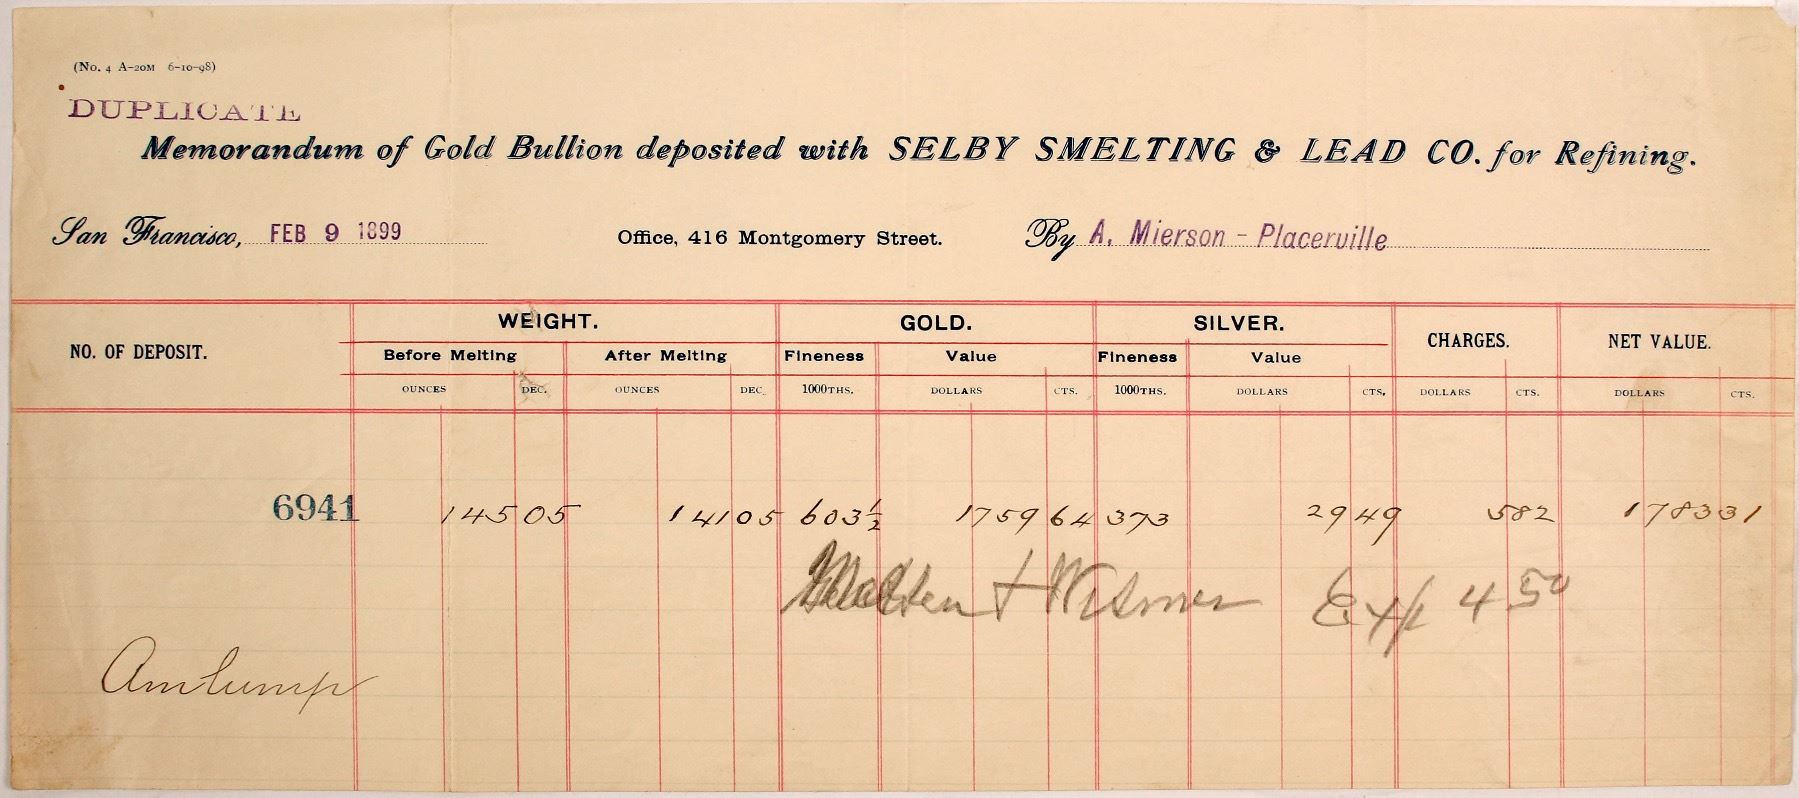 (No. 4 A-20M 6-10-98)
DUPLICATE
Memorandum of Gold Bullion deposited with SELBY SMELTING & LEAD CO. for Refining.
San Francisco, FEB 9 1899 Office, 416 Montgomery Street. By A. Mierson - Placerville
NO. OF DEPOSIT. WEIGHT. GOLD. SILVER. CHARGES. NET VALUE.
Before Melting After Melting Fineness Value Fineness Value
OUNCES DEC. OUNCES DEC. 1000THS. DOLLARS CTS. 1000THS. DOLLARS CTS. DOLLARS CTS. DOLLARS CTS.
6941 145 05 141 05 603½ 1759 64 373 29 49 5 82 1783 31
Exp 4 50